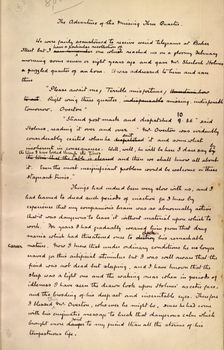 The Adventure of the Missing Three Quarter.
We were fairly accustomed to receive weird telegrams at Baker
Street but I have a particular recollection of one which reached us on a gloomy February
morning some seven or eight years ago and gave Mr Sherlock Holmes
a puzzled quarter of an hour. It was addressed to him and ran
thus
"Please await me. Terrible misfortune,
Right wing three quarter, indispensable tomorrow. Overton"
"Strand post mark and dispatched 10.36" said
Holmes, reading it over and over. "Mr Overton was evidently
considerably excited when he it and somewhat
incoherent in consequence. Well, well, he will be here I dare say by
the time I have looked through the Times
and then we shall know all about
it. Even the most insignificant problem would be welcome in these
stagnant times."
Things had indeed been very slow with us, and I
had learned to dread such periods of inaction for I knew by
experience that my companion's brain was so abnormally active
that it was dangerous to leave it without material upon which to
work. For years I had gradually weaned him from that drug
mania which had threatened once to his remarkable
career
nature. Now I knew that under ordinary conditions he no longer
craved for this artificial stimulus but I was well aware that the
fiend was not dead but sleeping, and I have known that the
sleep was a light one and the waking near when in periods of
idleness I have seen the drawn look upon Holmes' ascetic face,
and the brooding of his deep set and inscrutable eyes. Therefore
I blessed Mr Overton, whoever he might be, since he had come
with his enigmatic message to break that dangerous calm which
brought more to my friend than all the storms of his
tempestuous life.